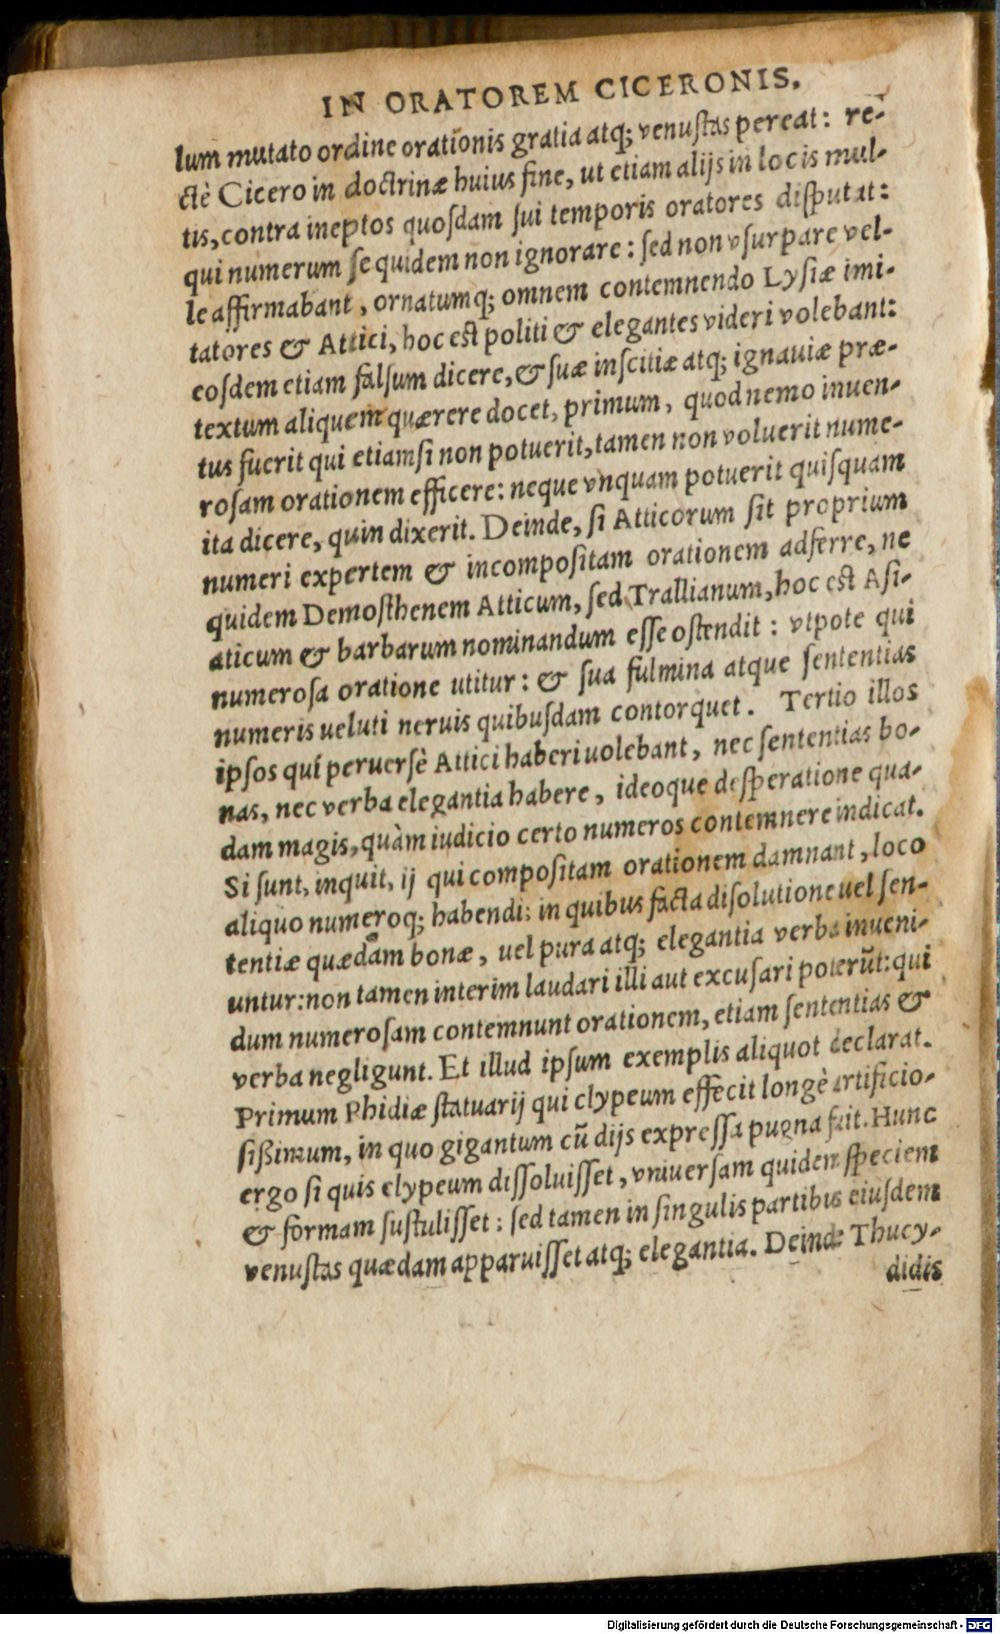 IN ORATOREM CICERONIS.
lum mutato ordine orationis gratia atq; venustas pereat: re-
ctè Cicero in doctrinæ huius fine, ut etiam alijs in locis mul-
tis, contra ineptos quosdam sui temporis oratores disputat:
qui numerum se quidem non ignorare: sed non vsurpare vel-
le affirmabant, ornatumq; omnem contemnendo Lysiæ imi-
tatores & Attici, hoc est politi & elegantes videri volebant:
eosdem etiam falsum dicere, & suæ inscitiæ atq; ignauiæ præ-
textum aliquem quærere docet, primum, quod nemo inuen-
tus fuerit qui etiamsi non potuerit, tamen non voluerit nume-
rosam orationem efficere: neque vnquam potuerit quisquam
ita dicere, quin dixerit. Deinde, si Atticorum sit proprium
numeri expertem & incompositam orationem adferre, ne
quidem Demosthenem Atticum, sed Trallianum, hoc est Asi-
aticum & barbarum nominandum esse ostendit: vtpote qui
numerosa oratione utitur: & sua fulmina atque sententias
numeris ueluti neruis quibusdam contorquet. Tertio illos
ipsos qui peruersè Attici haberi uolebant, nec sententias bo-
nas, nec verba elegantia habere, ideoque desperatione qua-
dam magis, quàm iudicio certo numeros contemnere indicat.
Si sunt, inquit, ij qui compositam orationem damnant, loco
aliquo numeroq; habendi: in quibus facta disolutione uel sen-
tentiæ quædam bonæ, uel pura atq; elegantia verba inueni-
untur: non tamen interim laudari illi aut excusari poterũt: qui
dum numerosam contemnunt orationem, etiam sententias &
verba negligunt. Et illud ipsum exemplis aliquot declarat.
Primum Phidiæ statuarij qui clypeum effecit longè artificio-
sißimum, in quo gigantum cũ dijs expressa pugna fuit. Hunc
ergo si quis clypeum dissoluisset, vniuersam quidem speciem
& formam sustulisset: sed tamen in singulis partibus eiusdem
venustas quædam apparuisset atq; elegantia. Deinde Thucy-
didis
Digitalisierung gefördert durch die Deutsche Forschungsgemeinschaft - DFG